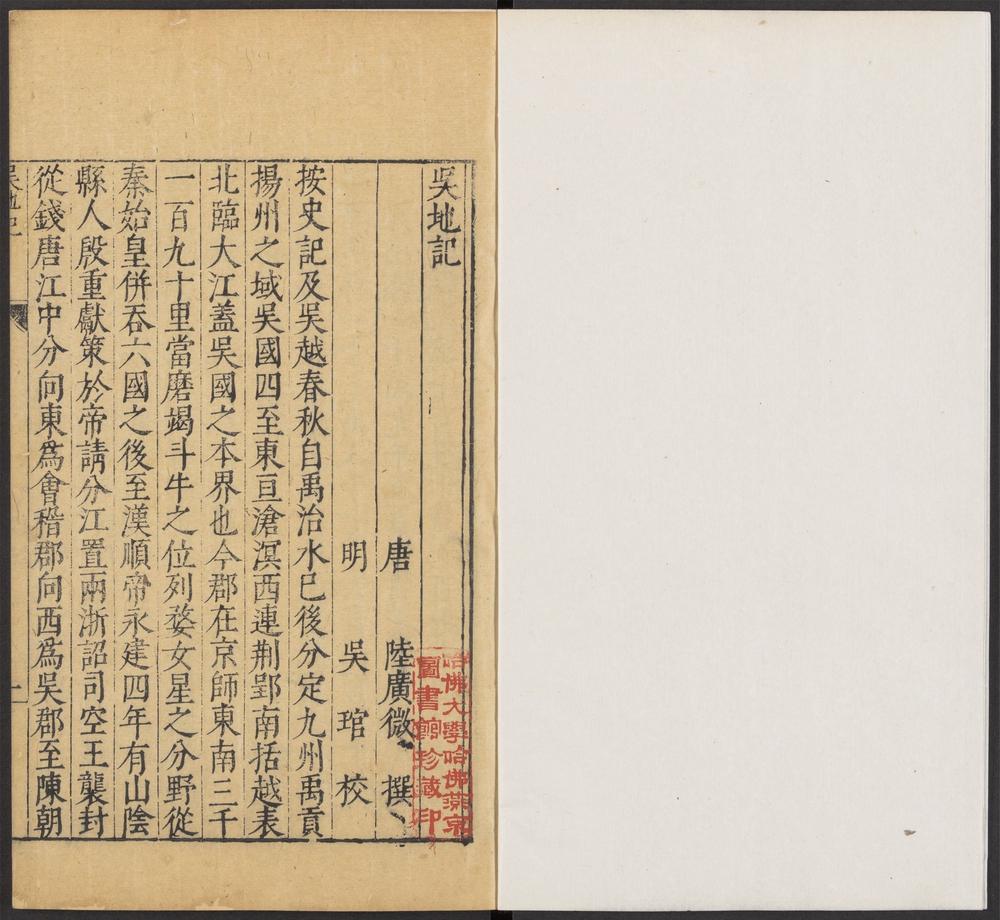 吳地記
唐 陸廣微 撰
明 吳琯 校
按史記及吳越春秋自禹治水已後分定九州禹貢
揚州之域吳國四至東亘滄溟西連荆郢南括越表
北臨大江蓋吳國之本界也今郡在京師東南三千
一百九十里當磨蝎斗牛之位列婺女星之分野從
秦始皇併吞六國之後至漢順帝永建四年有山陰
縣人殷重獻策於帝請分江置兩浙詔司空王襲封
從錢唐江中分向東爲會稽郡向西爲吳郡至陳朝
哈佛大學哈佛燕京
圖書館珍藏印